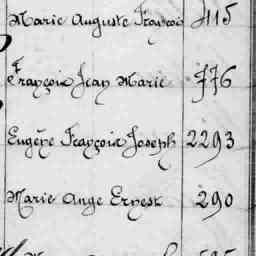 Marie Auguste François 415
François Jean Marie 776
Eugène François Joseph 2293
Marie Ange Ernest 290